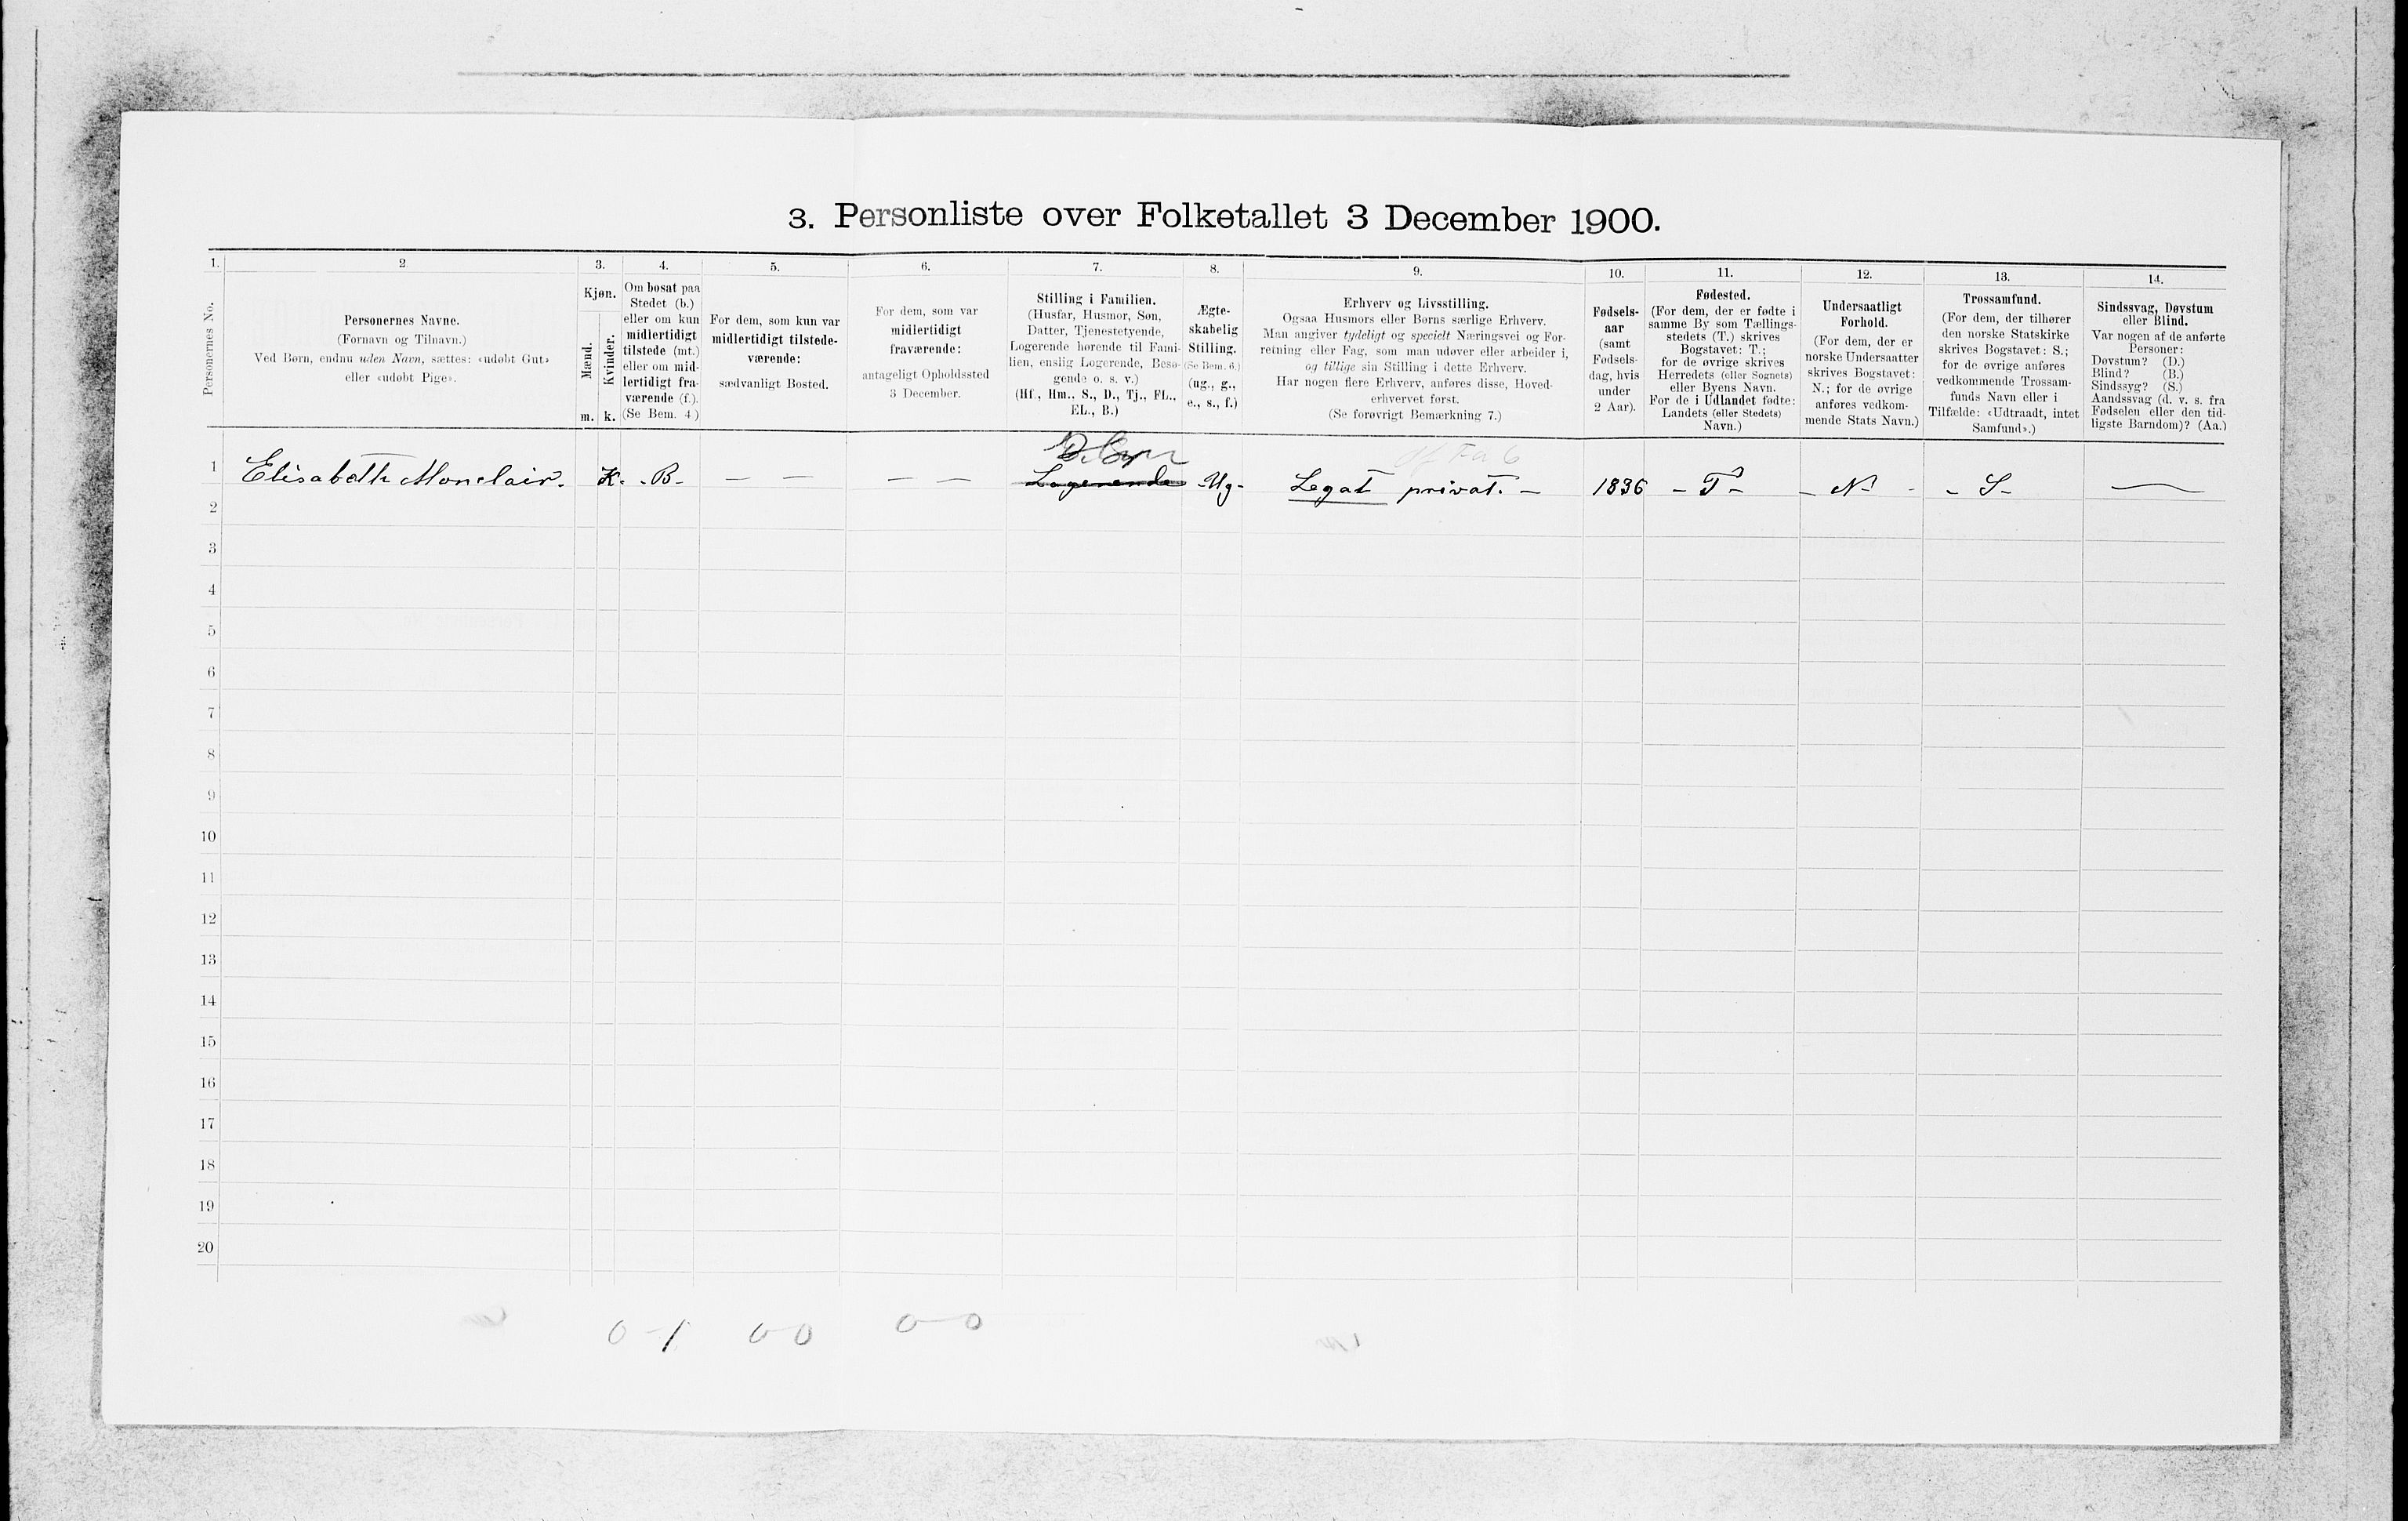 3. Personliste over Folketallet 3 December 1900.
1. 2 3. 4. 5. 6. 7. 8. 9. 10. 11. 12. 13. 14.
Personernes No.
Personernes Navne.
(Fornavn og Tilnavn.)
Ved Børn, endnu uden Navn, sættes: «udøbt Gut»
eller «udøbt Pige».
Kjøn.
Mænd.
Kvinder.
m. k.
Om bosat paa
Stedet (b.)
eller om kun
midlertidigt
tilstede (mt.)
eller om mid-
lertidigt fra-
værende (f.).
(Se Bem. 4.)
For dem, som kun var
midlertidigt tilstede-
værende:
sædvanligt Bosted.
For dem, som var
midlertidigt
fraværende:
antageligt Opholdssted
3 December.
Stilling i Familien.
(Husfar, Husmor, Søn,
Datter, Tjenestetyende,
Logerende hørende til Fami-
lien, enslig Logerende, Besø-
gende o. s. v.)
(Hf., Hm., S., D., Tj., FL.,
EL., B.)
Ægte-
skabelig
Stilling.
(Se Bem. 6.)
(ug., g.,
e., s., f.)
Erhverv og Livsstilling.
Ogsaa Husmors eller Børns særlige Erhverv.
Man angiver tydeligt og specielt Næringsvei og For-
retning eller Fag, som man udøver eller arbeider i,
og tillige sin Stilling i dette Erhverv.
Har nogen flere Erhverv, anføres disse, Hoved-
erhvervet først.
(Se forøvrigt Bemærkning 7.)
Fødsels-
aar
(samt
Fødsels-
dag, hvis
under
2 Aar).
Fødested.
(For dem, der er fødte i
samme By som Tællings-
stedets (T.) skrives
Bogstavet: T.;
for de øvrige skrives
Herredets (eller Sognets)
eller Byens Navn.
For de i Udlandet fødte:
Landets (eller Stedets)
Navn.)
Undersaatligt
Forhold.
(For dem, der er
norske Undersaatter
skrives Bogstavet:
N.; for de øvrige
anføres vedkom-
mende Stats Navn.)
Trossamfund.
(For dem, der tilhører
den norske Statskirke
skrives Bogstavet: S.;
for de øvrige anføres
vedkommende Trossam-
funds Navn eller i
Tilfælde: «Udtraadt, intet
Samfund».)
Sindssvag, Døvstum
eller Blind.
Var nogen af de anførte
Personer:
Døvstum? (D.)
Blind? (B.)
Sindssyg? (S.)
Aandssvag (d. v. s. fra
Fødselen eller den tid-
ligste Barndom)? (Aa.)
1 Elisabeth Monclair. K. - B - — — — — Logerende - Ug - Legat privat. — 1836 - T - - N - - - S - —
2
3
4
5
6
7
8
9
10
11
12
13
14
15
16
17
18
19
20
0 - 1 0 0 0 - 0